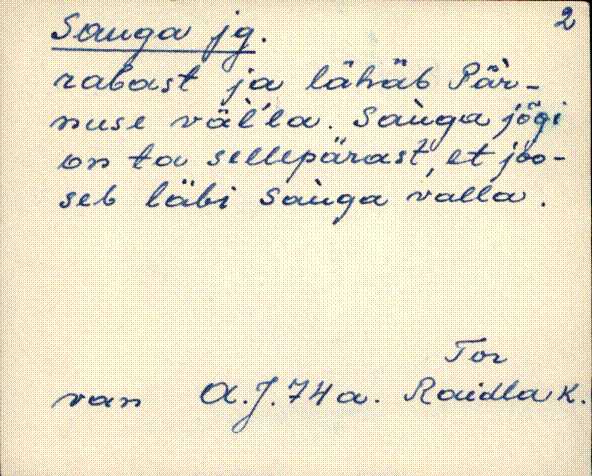 2
Sauga jg.
rabast ja lähäb Pär-
nuse väl'la. Sàuga jõgi
on ta sellepärast, et joo-
seb läbi Sàuga valla.
Tor
van A.J. 74 a. Raidla k.